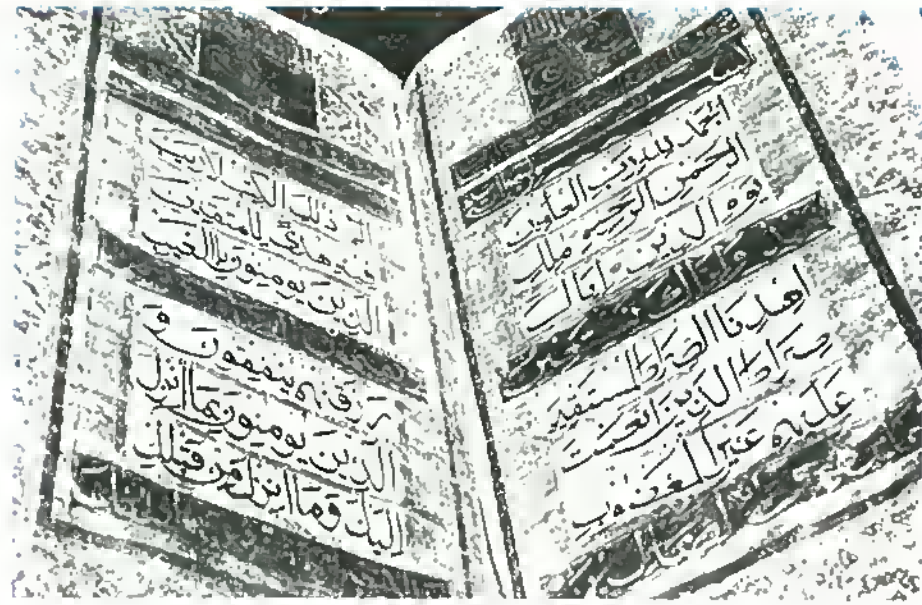 الحمد لله رب العالمين
الرحمن الرحيم ملك
يوم الدين اياك
واياك نستعين
اهدنا الصراط المستقيم
صراط الذين انعمت
عليهم غير المغضوب
الم ذلك الكتب لا ريب
فيه هدى للمتقين
الذين يومنون بالغيب
رزقنهم ينفقون و
الذين يومنون بما انزل
اليك وما انزل من قبلك